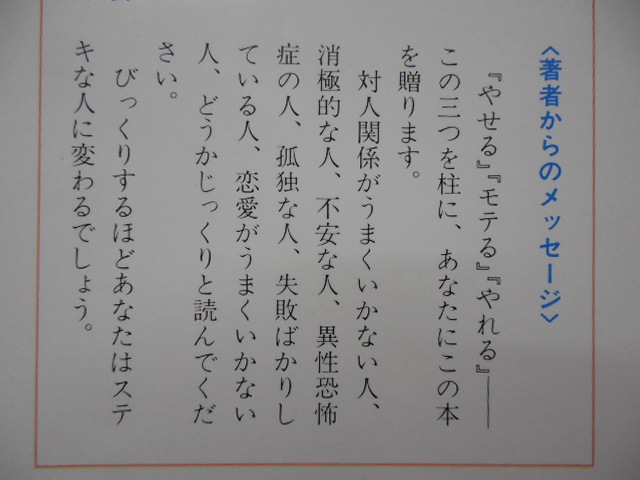 〈著者からのメッセージ〉
『やせる』『モテる』『やれる』――
この三つを柱に、あなたにこの本
を贈ります。
対人関係がうまくいかない人、
消極的な人、不安な人、異性恐怖
症の人、孤独な人、失敗ばかりし
ている人、恋愛がうまくいかない
人、どうかじっくりと読んでくだ
さい。
びっくりするほどあなたはステ
キな人に変わるでしょう。